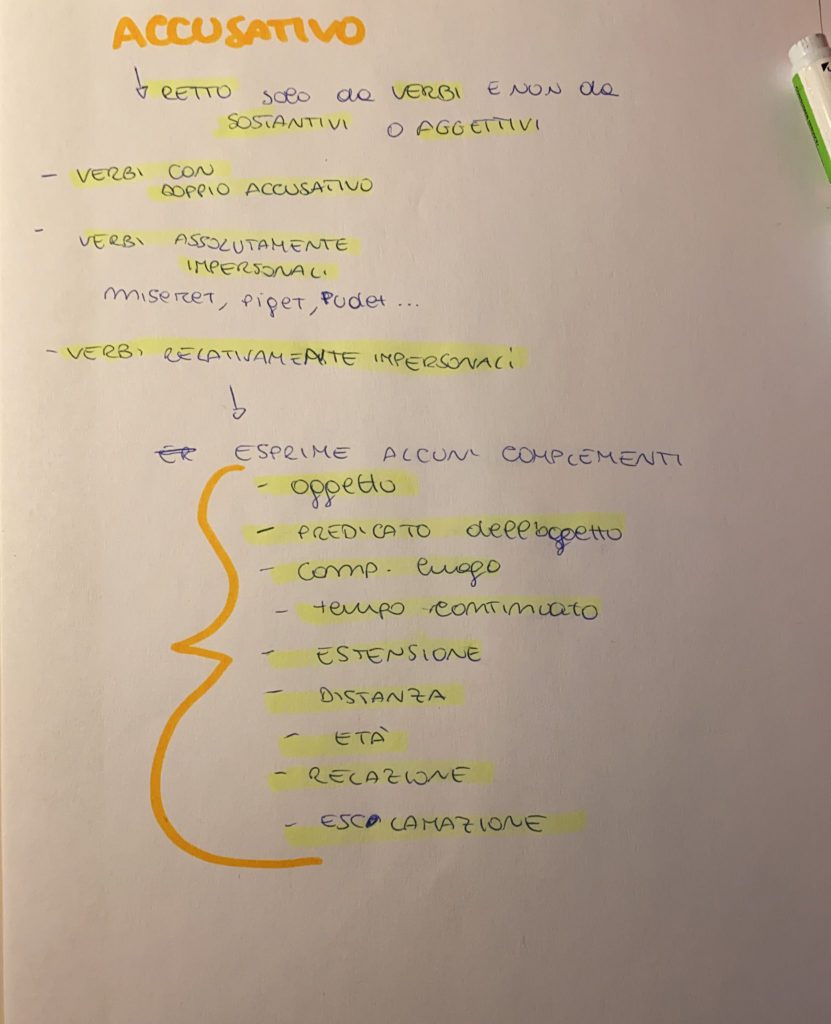 ACCUSATIVO
RETTO solo da VERBI E NON da
SOSTANTIVI O AGGETTIVI
- VERBI CON
DOPPIO ACCUSATIVO
- VERBI ASSOLUTAMENTE
IMPERSONALI
miseret, piget, pudet ...
- VERBI RELATIVAMENTE IMPERSONALI
ER ESPRIME ALCUNI COMPLEMENTI
- oggetto
- PREDICATO dell'oggetto
- comp. luogo
- tempo continuato
- ESTENSIONE
- DISTANZA
- ETÀ
- RELAZIONE
- ESCLAMAZIONE